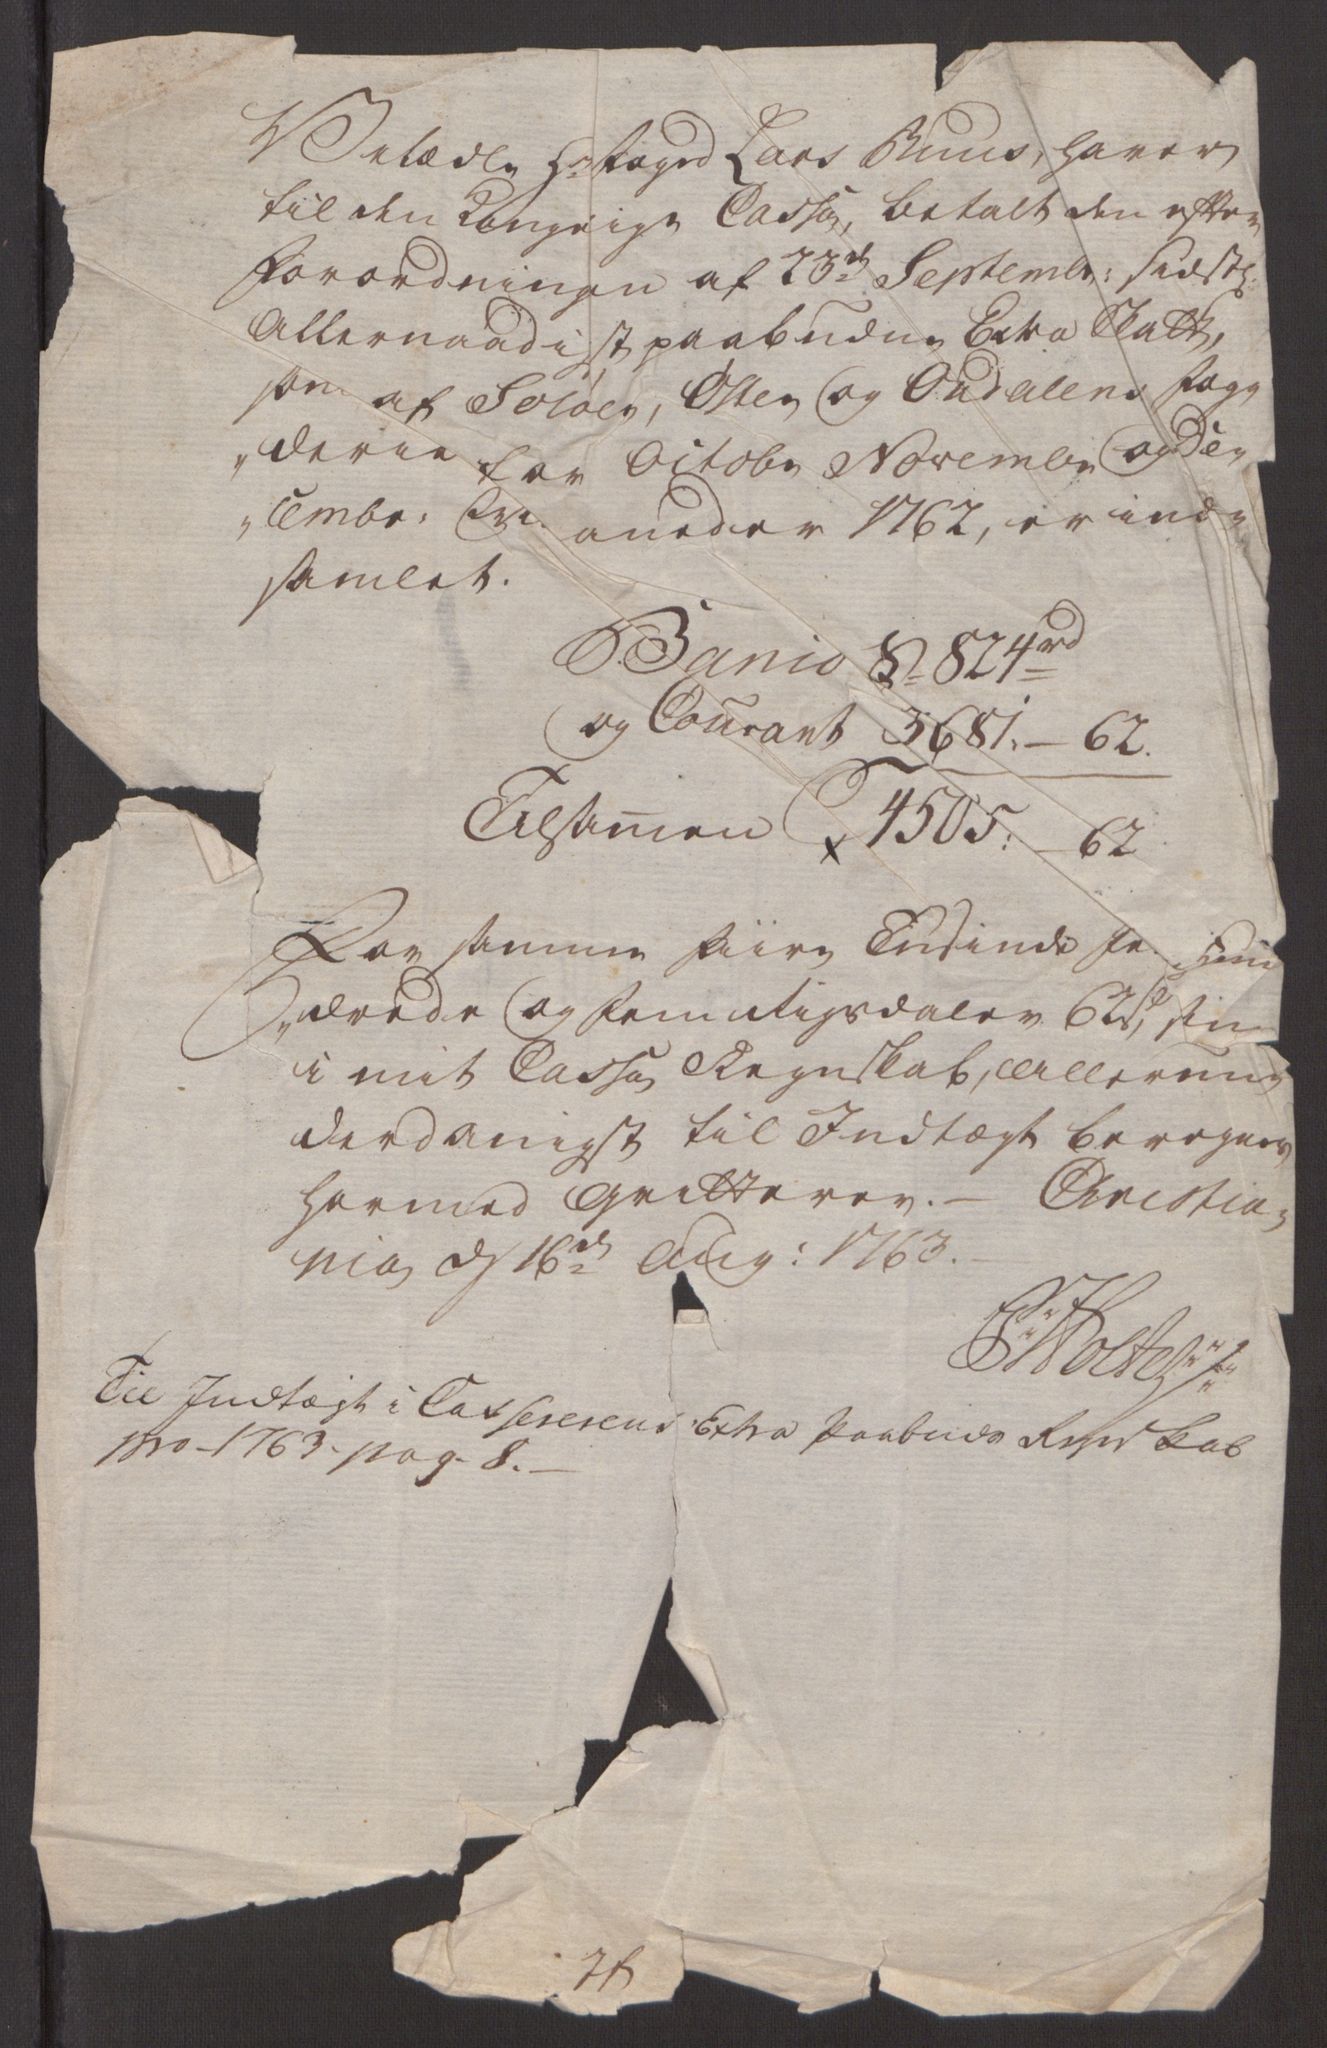 Velædle Hr Foged Lars Ruus, haver
til den Kongelige Cassa, betalt den efter
Forordningen af 23de September: sidstl:
Allernaadigst paabudne Extra Skatt,
som af Soløer, Østen og Oudalens Fog„
„derie for Octobr Novembr og De„
„cembr: Maaneder 1762, er ind„
samlet.
Banco S: 824 rd
og Courant 3681. — 62.
Tilsamen 4505: — 62
For samme fiire Tusinde fem Hun
„drede og fem Rigsdaler 62 s, som
i mit Cassa Regnskab, Allerun„
derdanigst til Indtægt beregnes
hermed qvitterer. — Christia„
nia d 16de Aug: 1763. —
Holte
Til Indtægt i Cassererens Extra Paabuds Regnskab
pro 1763. pag. 8. —